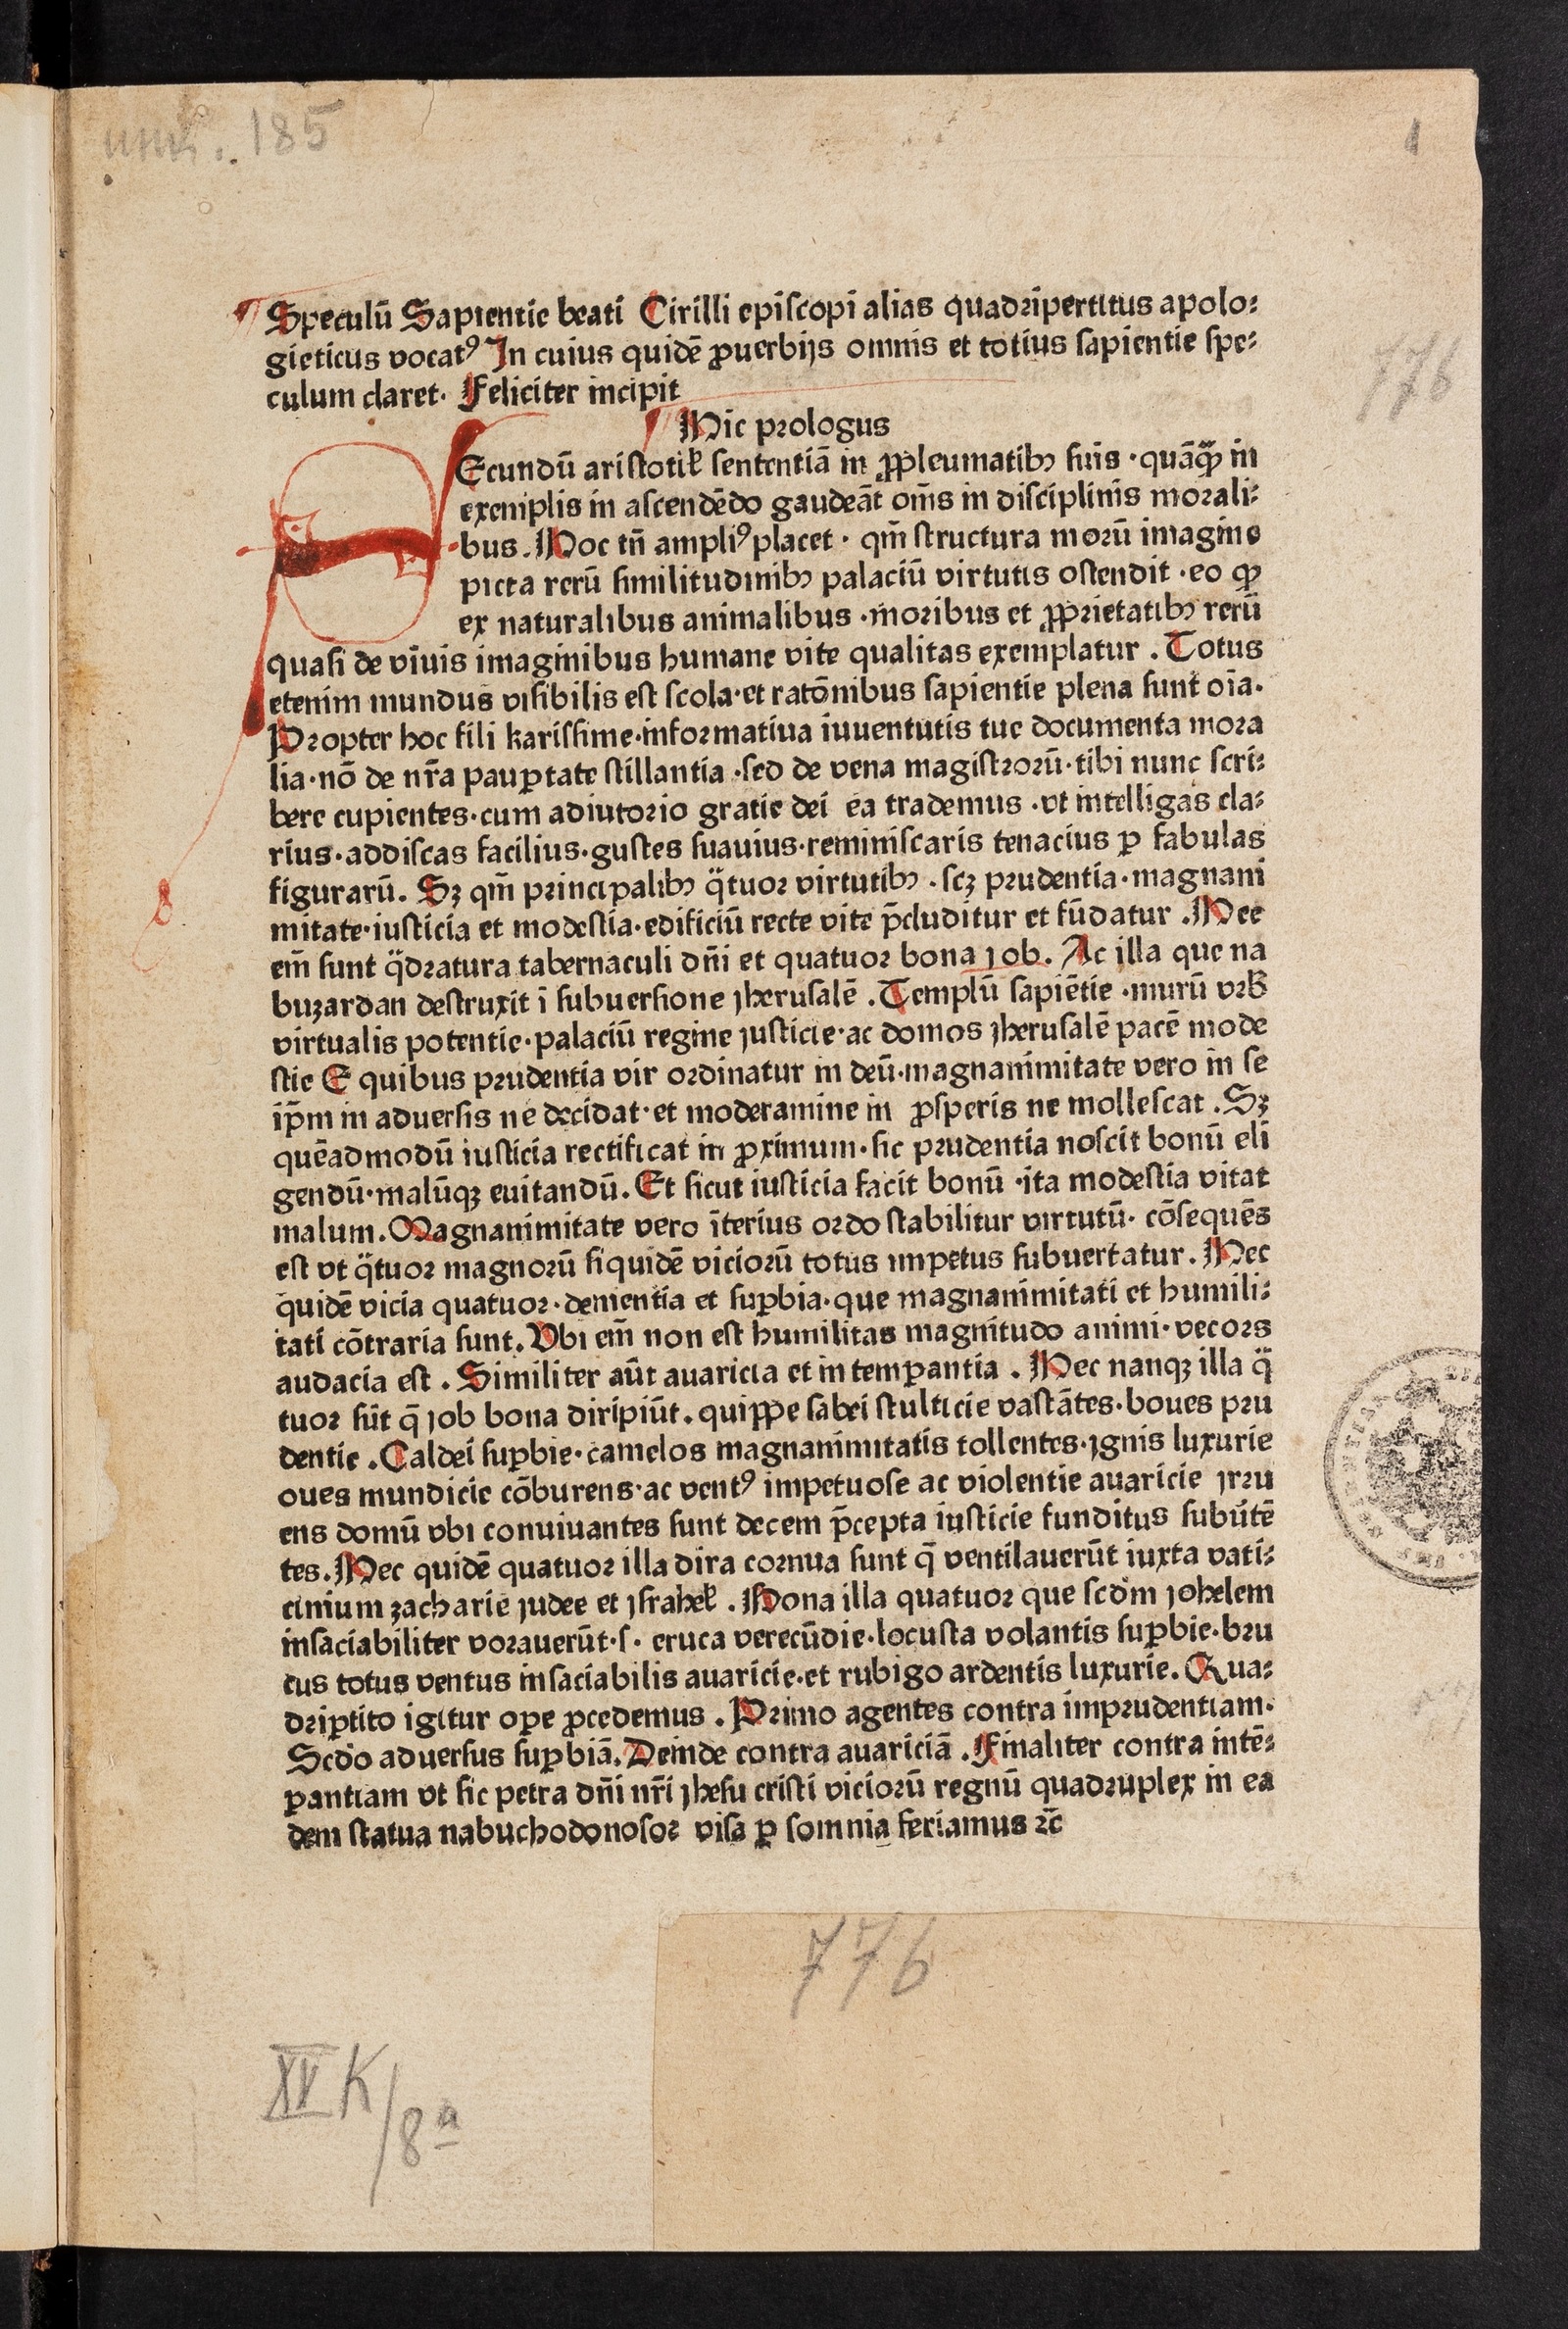 185
1
Speculū Sapientie beati Cirilli episcopi alias quadripertitus apolo⸗
gieticus vocatꝰ In cuius quidē ꝓuerbijs omnis et totius sapientie spe⸗
culum claret· Feliciter incipit
776
Hic prologus
Secundū aristotiƚ sententiā in ꝓpleumatibꝫ suis ·quāqͣꝫ in
exemplis in ascendēdo gaudeāt om̄s in disciplinis morali⸗
bus. Hoc tn̄ ampliꝰ placet · qm̄ structura morū imagine
picta rerū similitudinibꝫ palaciū virtutis ostendit ·eo ꝙ
ex naturalibus animalibus ·moribus et ꝓprietatibꝫ rerū
quasi de viuis imaginibus humane vite qualitas exemplatur . Totus
etenim mundus visibilis est scola·et ratōnibus sapientie plena sunt oīa.
Propter hoc fili karissime·informatiua iuuentutis tue documenta mora
lia·nō de nr̄a paupertate stillantia ·sed de vena magistrorū·tibi nunc scri⸗
bere cupientes·cum adiutorio gratie dei ea trademus ·vt intelligas cla⸗
rius·addiscas facilius·gustes suauius·reminiscaris tenacius ꝑ fabulas
figurarū. Sꝫ qm̄ principalibꝫ qͣtuor virtutibꝫ ·scꝫ prudentia·magnani
mitate·iusticia et modestia·edificiū recte vite p̄cluditur et fūdatur .Hee
em̄ sunt qͣdratura tabernaculi dn̄i et quatuor bona job. Ac illa que na
buzardan destruxit ī subuersione jherusalē .Templū sapiētie ·murū vrb̄
virtualis potentie·palaciū regine justicie·ac domos jherusalē pacē mode
stie E quibus prudentia vir ordinatur in deū·magnanimitate vero in se
ip̄m in aduersis ne decidat·et moderamine in ꝓsperis ne mollescat .Sꝫ
quēadmodū iusticia rectificat in ꝓximum·sic prudentia noscit bonū eli
gendū·malūqꝫ euitandū. Et sicut iusticia facit bonū ·ita modestia vitat
malum. Magnanimitate vero īterius ordo stabilitur virtutū· cōsequēs
est vt qͣtuor magnorū siquidē viciorū totus impetus subuertatur. Hec
quidē vicia quatuor·dementia et suꝑbia·que magnanimitati et humili⸗
tati cōtraria sunt. Vbi em̄ non est humilitas magnitudo animi·vecors
audacia est . Similiter aūt auaricia et in temꝑantia . Hec nanqꝫ illa qͣ
tuor sūt q̄ job bona diripiūt. quippe sabei stulticie vastātes·boues pru
dentie .Caldei suꝑbie·camelos magnanimitatis tollentes·jgnis luxurie
oues mundicie cōburens·ac ventꝰ impetuose ac violentie auaricie jrru
ens domū vbi conuiuantes sunt decem p̄cepta iusticie funditus subūtē
tes. Hec quidē quatuor illa dira cornua sunt q̄ ventilauerūt iuxta vati⸗
cinium zacharie judee et jsraheƚ . Bona illa quatuor que scdm̄ johelem
insaciabiliter vorauerūt·s· eruca verecūdie·locusta volantis suꝑbie·bru
cus totus ventus insaciabilis auaricie·et rubigo ardentis luxurie. Qua⸗
driꝑtito igitur oꝑe ꝓcedemus . Primo agentes contra imprudentiam·
Scdo aduersus suꝑbiā. Deinde contra auariciā . Finaliter contra intē⸗
ꝑantiam vt sic petra dn̄i nr̄i jhesu cristi viciorū regnū quadruplex in ea
dem statua nabuchodonosor visa ꝑ somnia feriamus ⁊c̄
776
XV K/8a